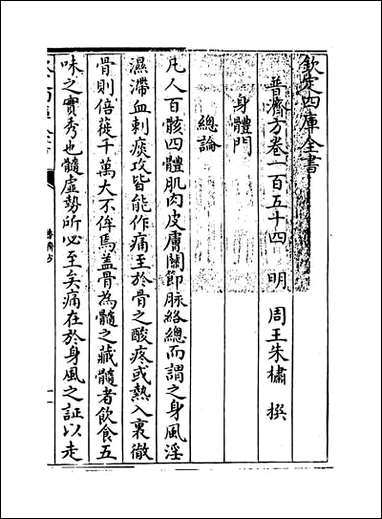 欽定四庫全書
普濟方卷一百五十四 明 周王朱橚 撰
身體門
總論
凡人百骸四體肌肉皮膚關節脉絡總而謂之身風淫
濕滯血刺痰攻皆能作痛至於骨之酸疼或熱入裏徹
骨則倍蓰千萬大不侔焉盖骨為髓之藏髓者飲食五
味之實秀也髓虛勢所必至矣痛在於身風之証以走
普濟方
一